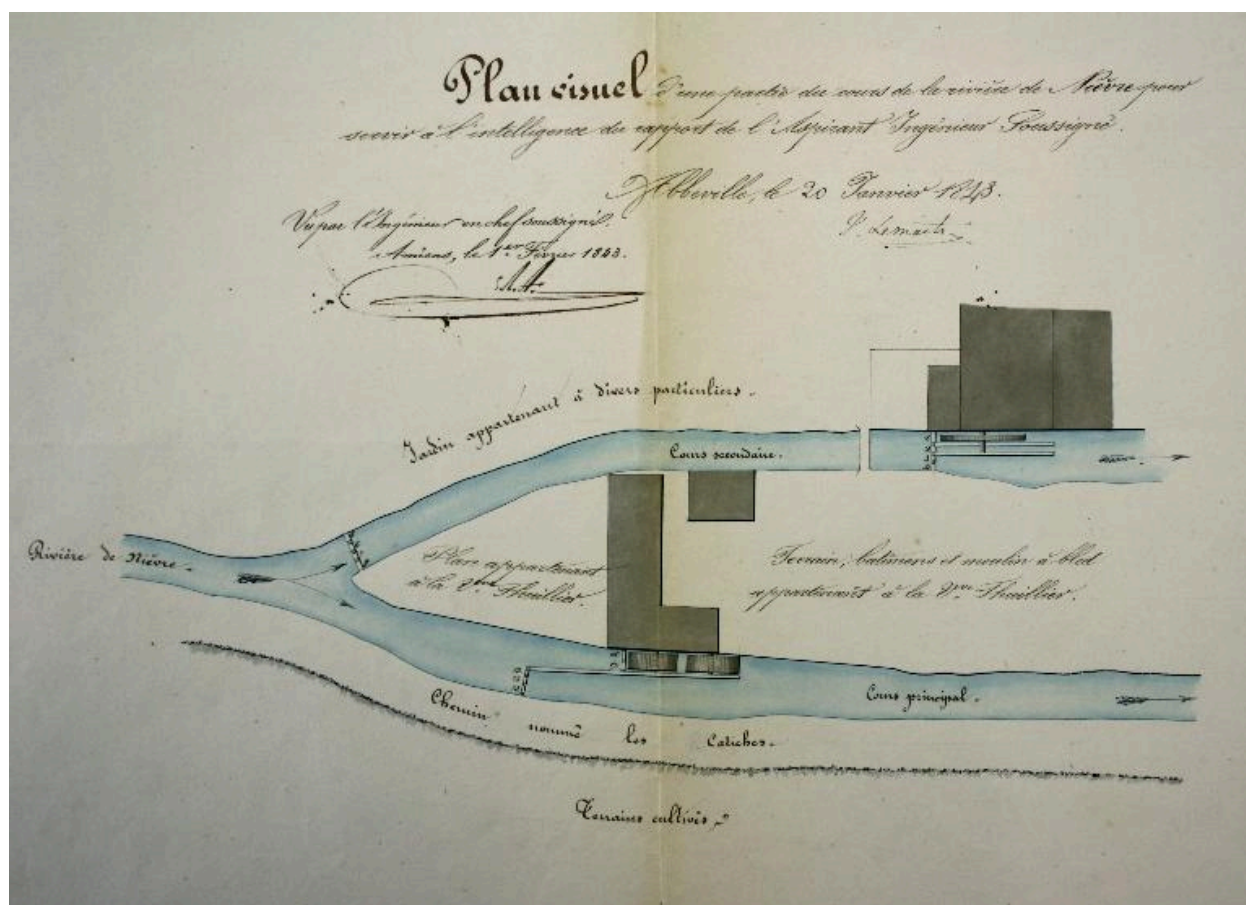 Plan visuel d'une partie du cours de la rivière de Nièvre pour
servir à l'intelligence du rapport de l'Aspirant Ingénieur Soussigné.
Abbeville, le 20 Janvier 1843.
Vu par l'Ingénieur en chef soussigné.
Amiens, le 1er Février 1843.
Jardin appartenant à divers particuliers.
Cours secondaire.
Rivière de Nièvre.
Plan appartenant
à la Vve Thuillier.
Terrain, batimens et moulin à bled
appartenant à la Vve Thuillier.
Cours principal.
Chemin nommé les Catiches.
Terrains cultivés